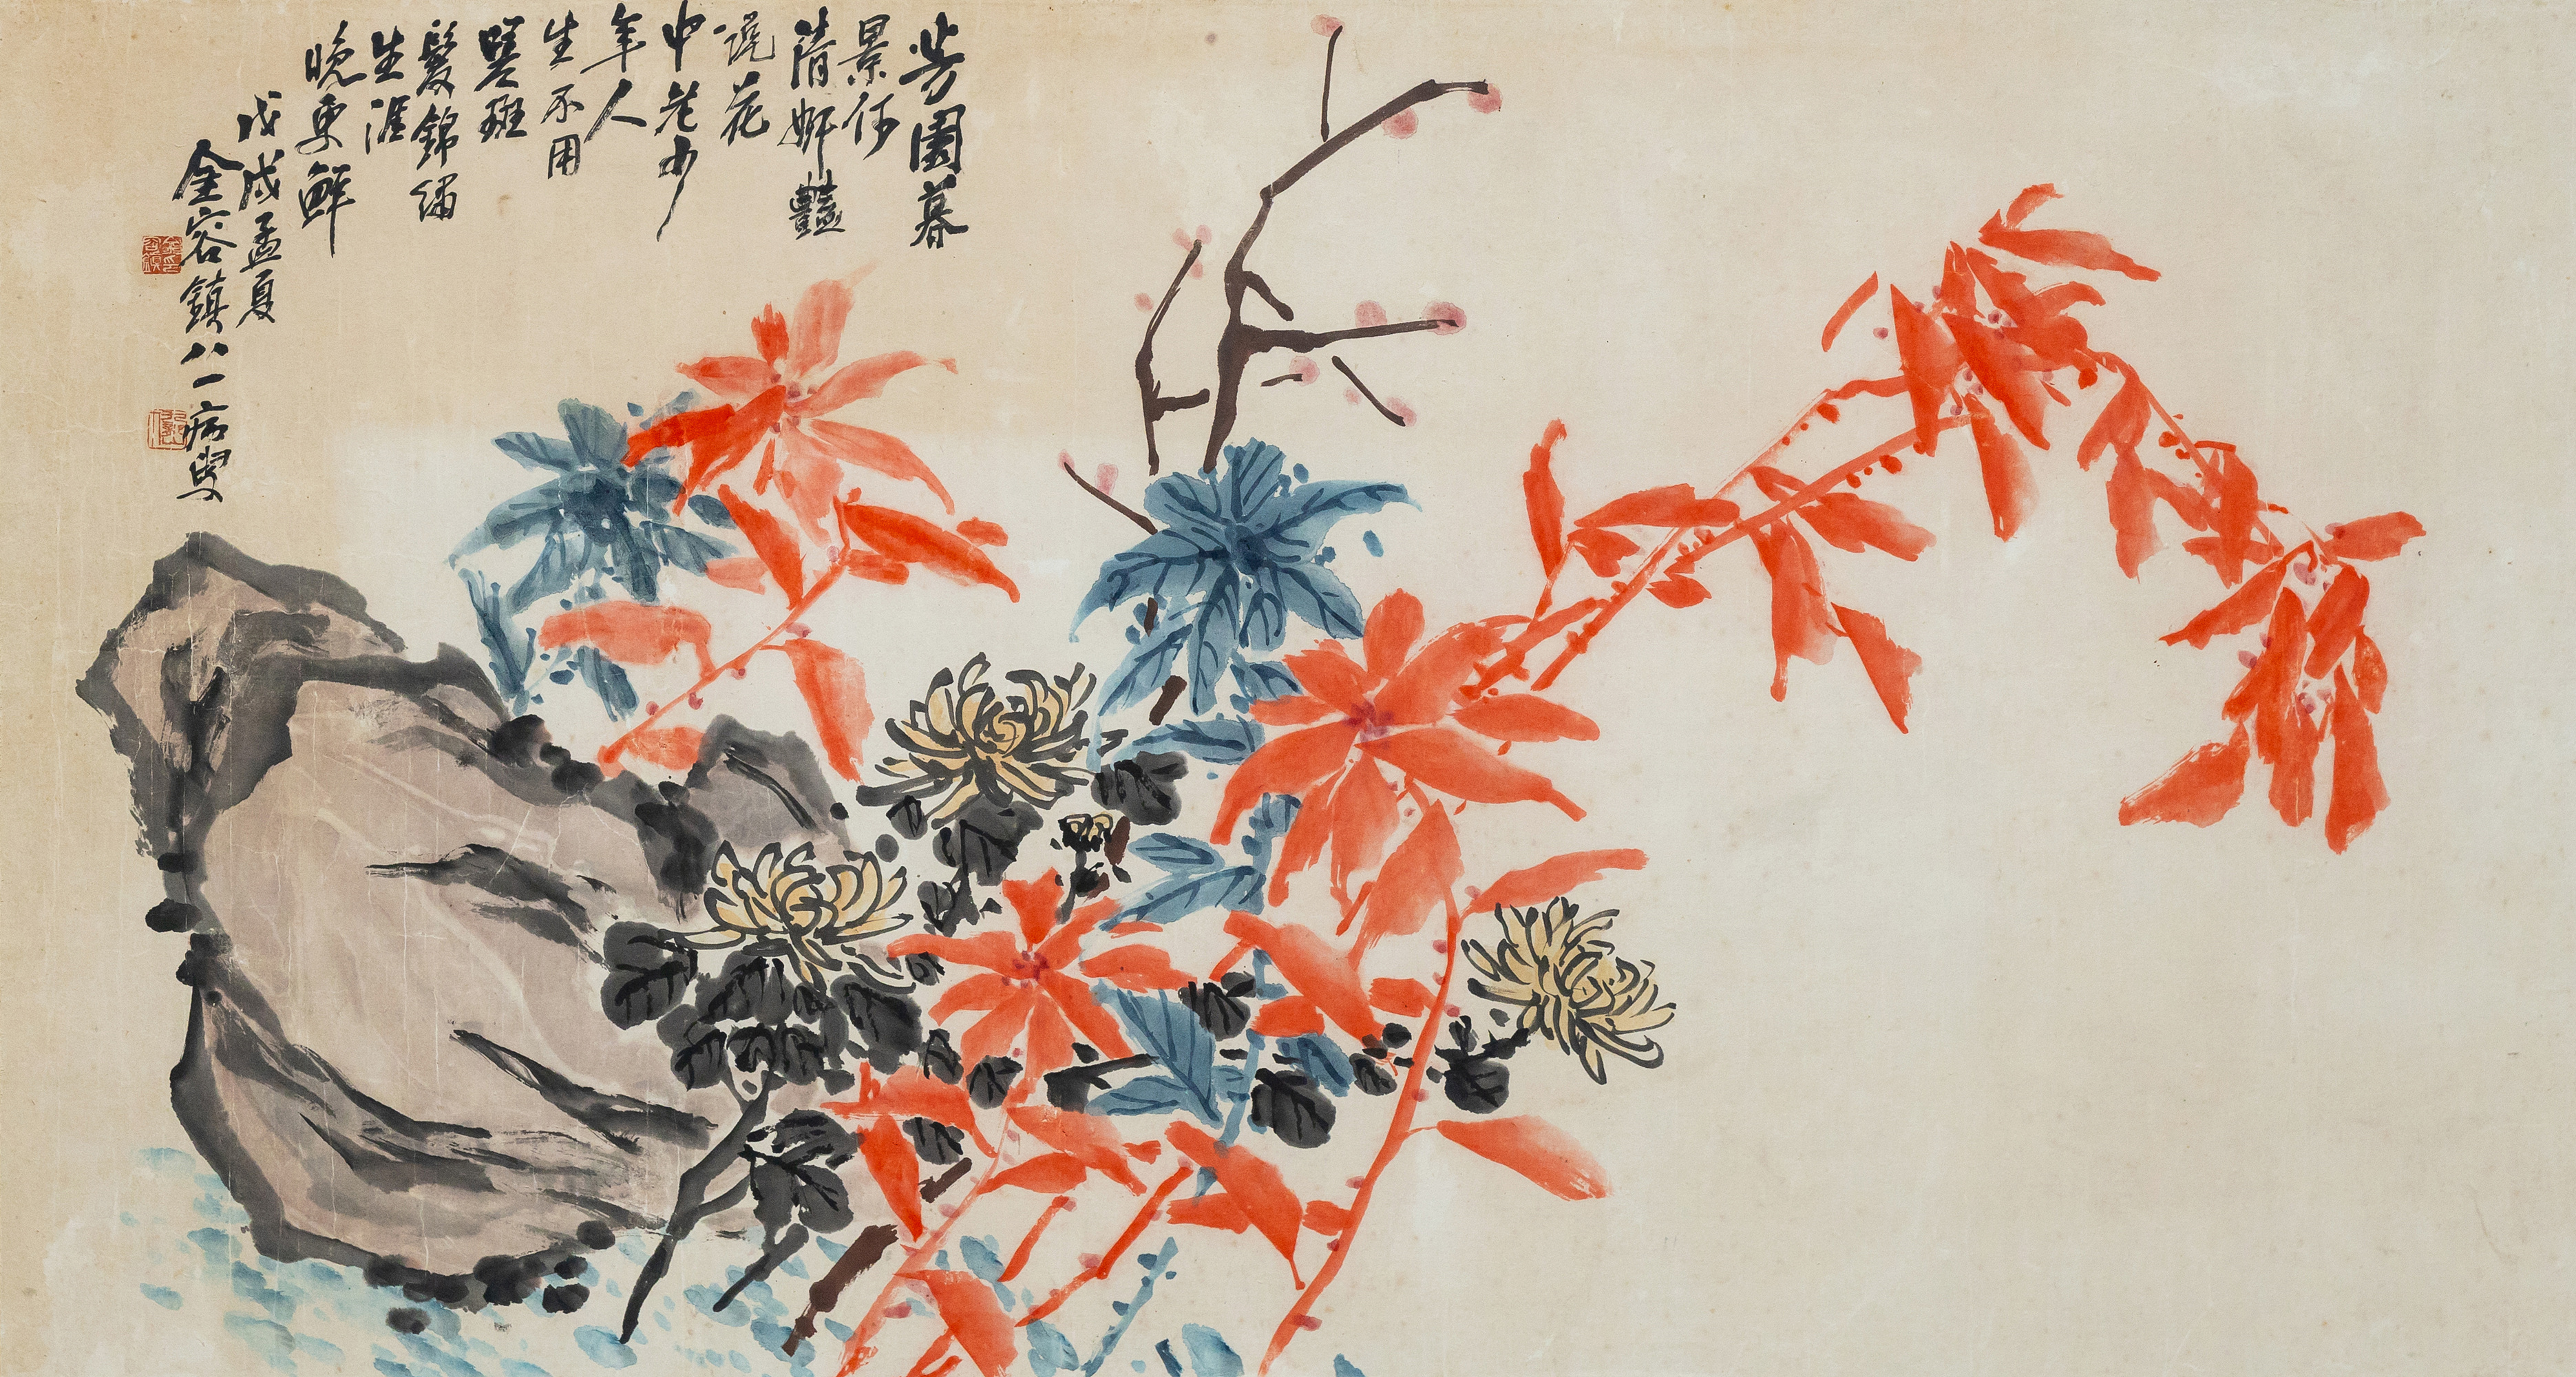 芳園暮
景何
清妍豔
說花
中老少
年人
生不用
嗟斑
鬢錦繡
生涯
晚更鮮
戊戌孟夏
金容鎮八一病叟